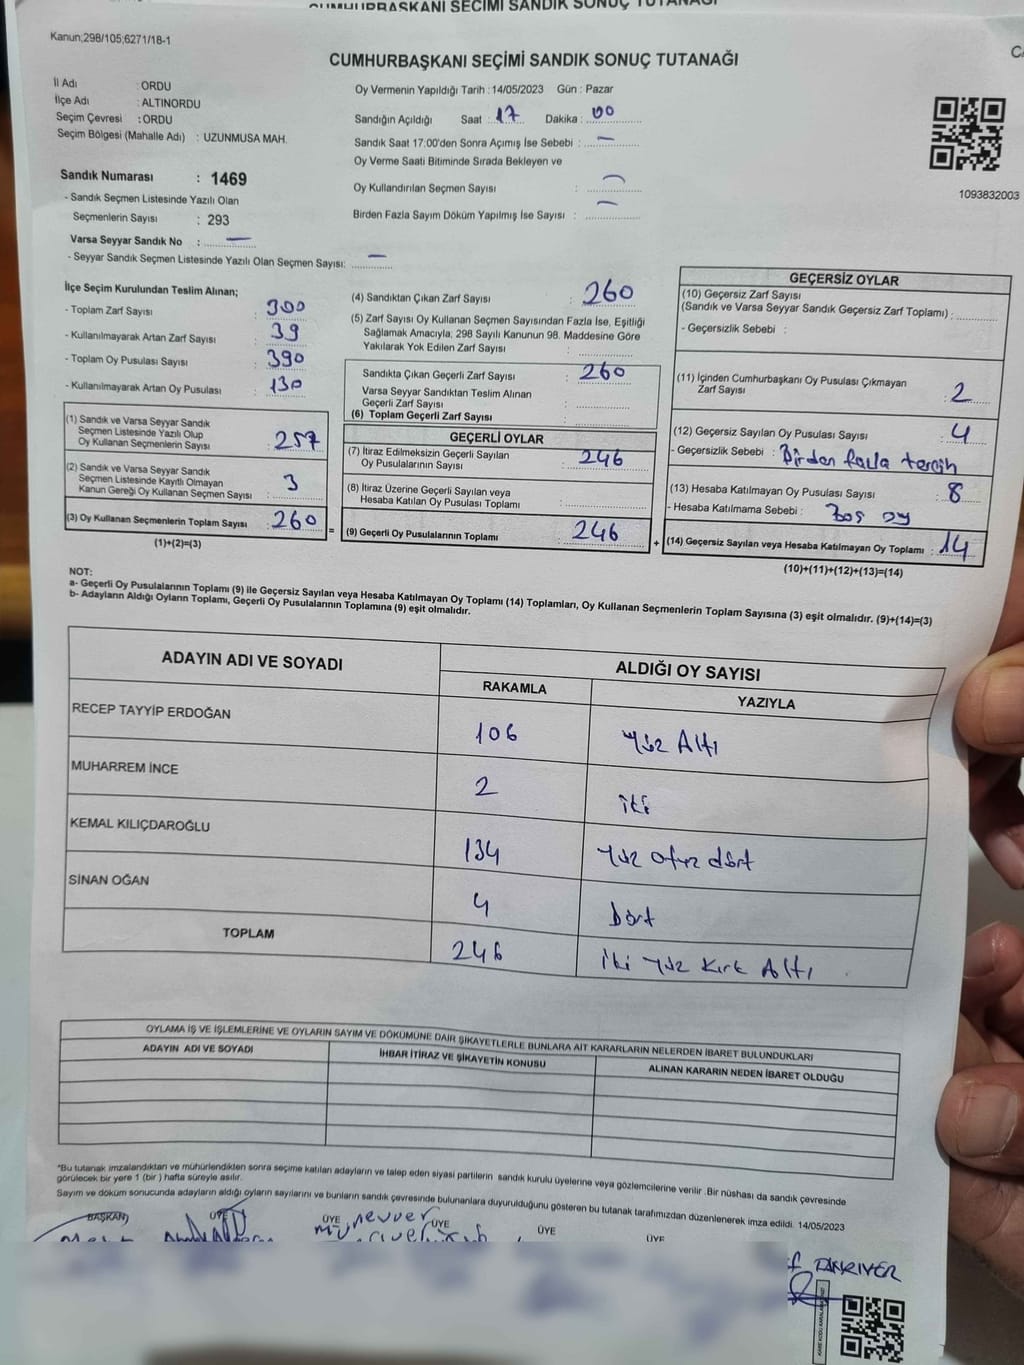 CUMHURBAŞKANI SEÇİMİ SANDIK SONUÇ TUTANAĞI
Kanun;298/105;6271/18-1
CUMHURBAŞKANI SEÇİMİ SANDIK SONUÇ TUTANAĞI
İl Adı : ORDU
İlçe Adı : ALTINORDU
Seçim Çevresi : ORDU
Seçim Bölgesi (Mahalle Adı) : UZUNMUSA MAH.
Oy Vermenin Yapıldığı Tarih : 14/05/2023 Gün : Pazar
Sandığın Açıldığı Saat : 17 Dakika : 00
Sandık Saat 17:00'den Sonra Açımış İse Sebebi : —
Oy Verme Saati Bitiminde Sırada Bekleyen ve
Oy Kullandırılan Seçmen Sayısı : —
Birden Fazla Sayım Döküm Yapılmış İse Sayısı : —
1093832003
Sandık Numarası : 1469
- Sandık Seçmen Listesinde Yazılı Olan
Seçmenlerin Sayısı : 293
Varsa Seyyar Sandık No : —
- Seyyar Sandık Seçmen Listesinde Yazılı Olan Seçmen Sayısı: —
İlçe Seçim Kurulundan Teslim Alınan;
- Toplam Zarf Sayısı : 300
- Kullanılmayarak Artan Zarf Sayısı : 39
- Toplam Oy Pusulası Sayısı : 390
- Kullanılmayarak Artan Oy Pusulası : 130
(1) Sandık ve Varsa Seyyar Sandık
Seçmen Listesinde Yazılı Olup
Oy Kullanan Seçmenlerin Sayısı : 257
(2) Sandık ve Varsa Seyyar Sandık
Seçmen Listesinde Kayıtlı Olmayan
Kanun Gereği Oy Kullanan Seçmen Sayısı : 3
(3) Oy Kullanan Seçmenlerin Toplam Sayısı : 260 =
(1)+(2)=(3)
(4) Sandıktan Çıkan Zarf Sayısı : 260
(5) Zarf Sayısı Oy Kullanan Seçmen Sayısından Fazla İse, Eşitliği
Sağlamak Amacıyla, 298 Sayılı Kanunun 98. Maddesine Göre
Yakılarak Yok Edilen Zarf Sayısı :
Sandıkta Çıkan Geçerli Zarf Sayısı : 260
Varsa Seyyar Sandıktan Teslim Alınan
Geçerli Zarf Sayısı :
(6) Toplam Geçerli Zarf Sayısı :
GEÇERLİ OYLAR
(7) İtiraz Edilmeksizin Geçerli Sayılan
Oy Pusulalarının Sayısı : 246
(8) İtiraz Üzerine Geçerli Sayılan veya
Hesaba Katılan Oy Pusulası Toplamı :
(9) Geçerli Oy Pusulalarının Toplamı : 246 +
GEÇERSİZ OYLAR
(10) Geçersiz Zarf Sayısı
(Sandık ve Varsa Seyyar Sandık Geçersiz Zarf Toplamı) :
- Geçersizlik Sebebi :
(11) İçinden Cumhurbaşkanı Oy Pusulası Çıkmayan
Zarf Sayısı : 2
(12) Geçersiz Sayılan Oy Pusulası Sayısı : 4
- Geçersizlik Sebebi : Birden fazla tercih
(13) Hesaba Katılmayan Oy Pusulası Sayısı : 8
- Hesaba Katılmama Sebebi : Boş oy
(14) Geçersiz Sayılan veya Hesaba Katılmayan Oy Toplamı : 14
(10)+(11)+(12)+(13)=(14)
NOT:
a- Geçerli Oy Pusulalarının Toplamı (9) ile Geçersiz Sayılan veya Hesaba Katılmayan Oy Toplamı (14) Toplamları, Oy Kullanan Seçmenlerin Toplam Sayısına (3) eşit olmalıdır. (9)+(14)=(3)
b- Adayların Aldığı Oyların Toplamı, Geçerli Oy Pusulalarının Toplamına (9) eşit olmalıdır.
ADAYIN ADI VE SOYADI ALDIĞI OY SAYISI
RAKAMLA YAZIYLA
RECEP TAYYİP ERDOĞAN 106 Yüz Altı
MUHARREM İNCE 2 iki
KEMAL KILIÇDAROĞLU 134 Yüz otuz dört
SİNAN OĞAN 4 Dört
TOPLAM 246 iki Yüz Kırk Altı
OYLAMA İŞ VE İŞLEMLERİNE VE OYLARIN SAYIM VE DÖKÜMÜNE DAİR ŞİKAYETLERLE BUNLARA AİT KARARLARIN NELERDEN İBARET BULUNDUKLARI
ADAYIN ADI VE SOYADI İHBAR İTİRAZ VE ŞİKAYETİN KONUSU ALINAN KARARIN NEDEN İBARET OLDUĞU
*Bu tutanak imzalandıktan ve mühürlendikten sonra seçime katılan adayların ve talep eden siyasi partilerin sandık kurulu üyelerine veya gözlemcilerine verilir .Bir nüshası da sandık çevresinde
görülecek bir yere 1 (bir ) hafta süreyle asılır.
Sayım ve döküm sonucunda adayların aldığı oyların sayılarını ve bunların sandık çevresinde bulunanlara duyurulduğunu gösteren bu tutanak tarafımızdan düzenlenerek imza edildi. 14/05/2023
BAŞKAN ÜYE ÜYE ÜYE ÜYE ÜYE